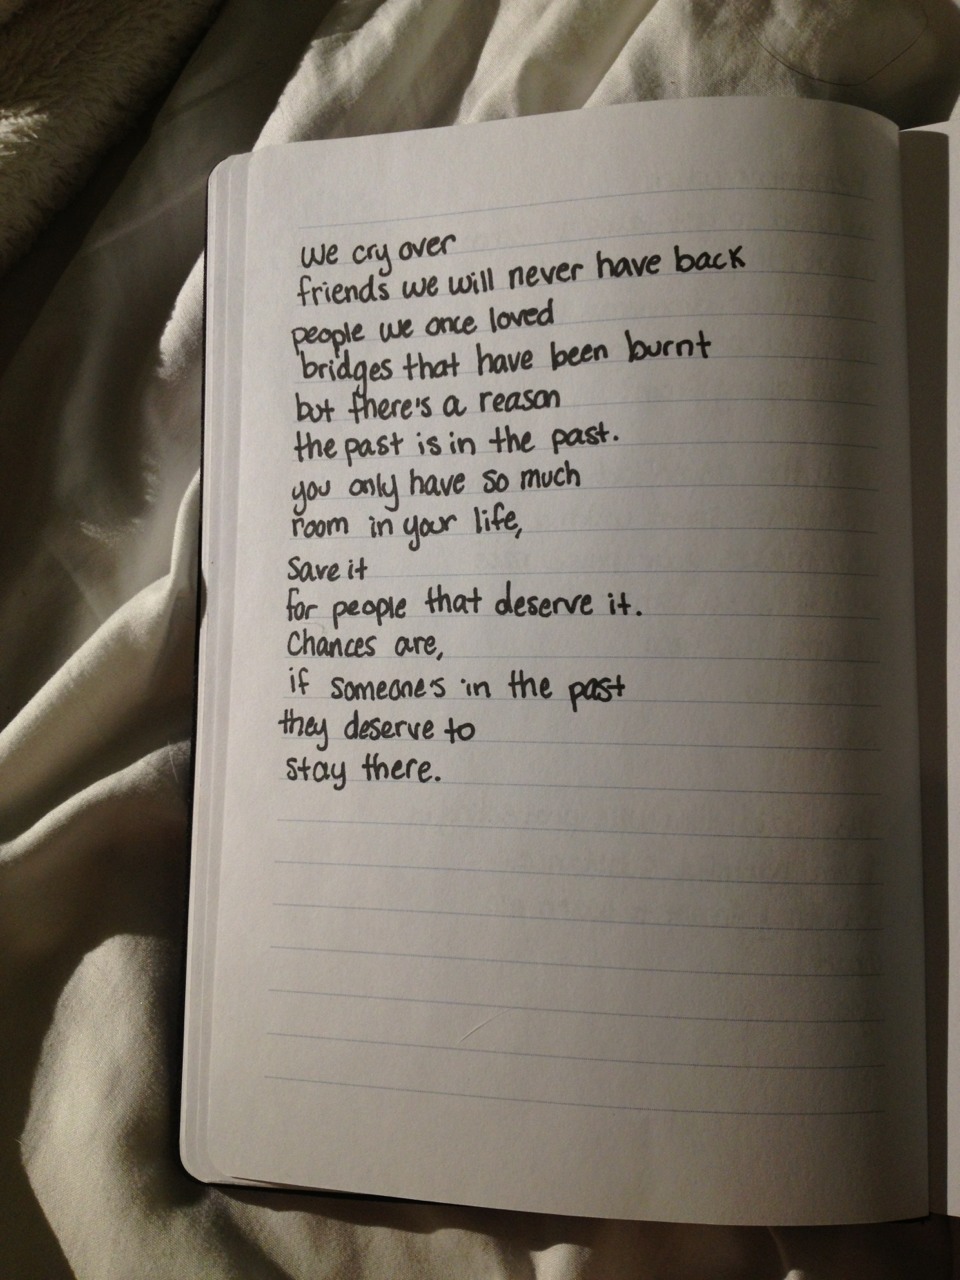 we cry over
friends we will never have back
people we once loved
bridges that have been burnt
but there's a reason
the past is in the past.
you only have so much
room in your life,
save it
for people that deserve it.
Chances are,
if someone's in the past
they deserve to
stay there.